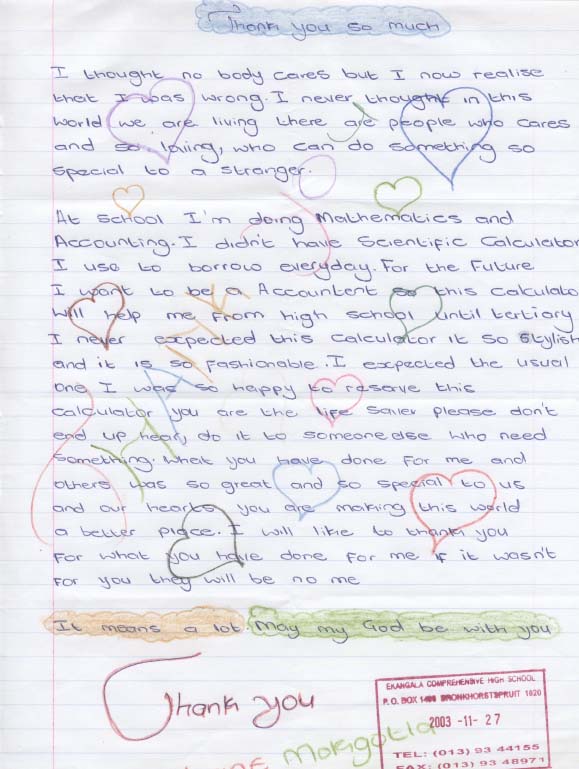 Thank you so much
I thought no body cares but I now realise
that I was wrong. I never thought in this
world we are living there are people who cares
and so loving, who can do something so
special to a stranger.
At school I'm doing Mathematics and
Accounting. I didn't have Scientific Calculator
I use to borrow everyday. For the Future
I want to be a Accountent so this calculato
will help me from high school until tertiary
I never expected this calculator it so stylish
and it is so fashionable. I expected the usual
one I was so happy to reserve this
calculator you are the life saver please don't
end up hear, do it to someone else who need
something. what you have done for me and
others was so great and so special to us
and our hearts you are making this world
a better place. I will like to thank you
for what you have done for me if it wasn't
for you they will be no me
It means a lot. May my God be with you
Thank you
Makgotla
EKANGALA COMPREHENSIVE HIGH SCHOOL
P.O. BOX BRONKHORSTSPRUIT 1020
2003 -11- 27
TEL: (013) 93 44155
FAX: (013) 93 48971